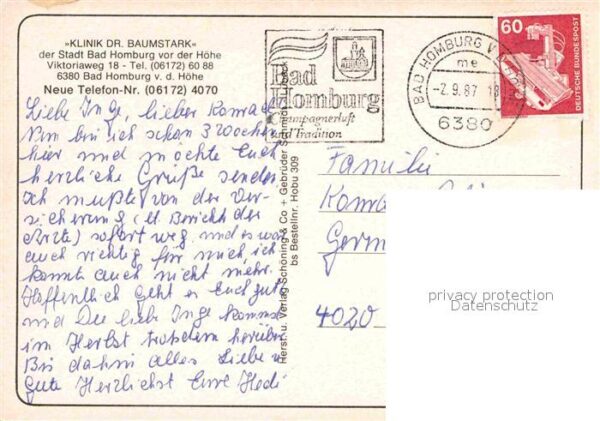 »KLINIK DR. BAUMSTARK«
der Stadt Bad Homburg vor der Höhe
Viktoriaweg 18 - Tel. (06172) 60 88
6380 Bad Homburg v. d. Höhe
Neue Telefon-Nr. (06172) 4070
Liebe Inge, lieber Konrad!
Nun bin ich schon 3 Wochen
hier und möchte Euch
herzliche Grüße senden
Ich mußte von der Ver-
sicherung (lt. Bericht der
Ärzte) sofort weg und es war
auch richtig für mich, ich
konnte auch nicht mehr.
Hoffentlich geht es Euch gut
und Du liebe Inge kommst
im Herbst trotzdem herüber
Bis dahin alles Liebe u.
Gute Herzlichst Eure Hedi
Herst. u. Verlag Schöning & Co + Gebrüder Schmidt
bs Bestellnr. Hobu 309
Bad
Homburg
Champagnerluft
und Tradition
BAD HOMBURG V
me
-2.9.87 18
6380
60
DEUTSCHE BUNDESPOST
Familie
Germ
4020
privacy protection
Datenschutz